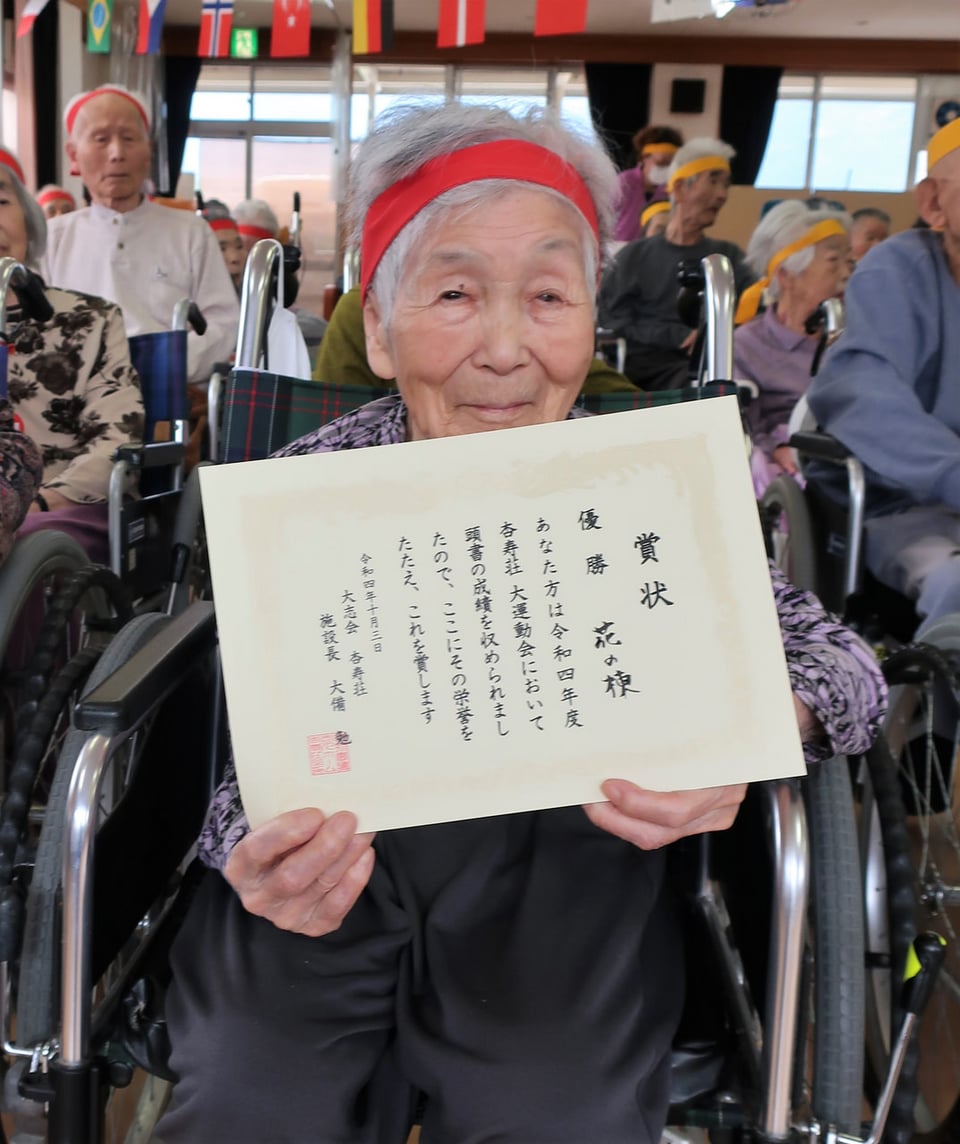 賞状
優勝 花の棟
あなた方は令和四年度
杏寿荘 大運動会において
頭書の成績を収められまし
たので、ここにその栄誉を
たたえ、これを賞します
令和四年十月三日
大志会 杏寿荘
施設長 大備 勉